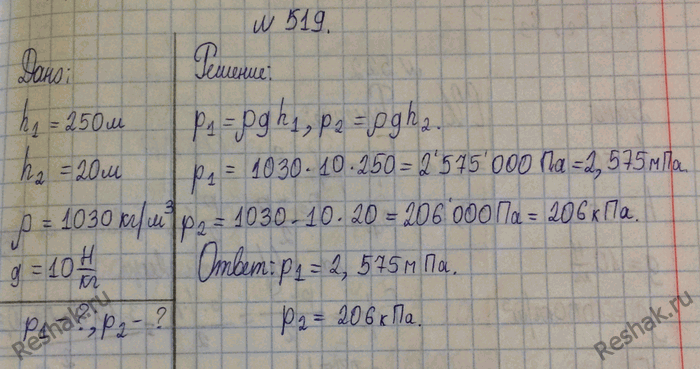 № 519.
Дано:
h₁ = 250м
h₂ = 20м
ρ = 1030 кг/м³
g = 10 Н/кг
p₁ - ?, p₂ - ?
Решение:
p₁ = ρgh₁, p₂ = ρgh₂.
p₁ = 1030·10·250 = 2'575'000 Па = 2,575мПа.
p₂ = 1030·10·20 = 206'000Па = 206кПа.
Ответ: p₁ = 2,575мПа.
p₂ = 206кПа.
Reshak.ru
Reshak.ru